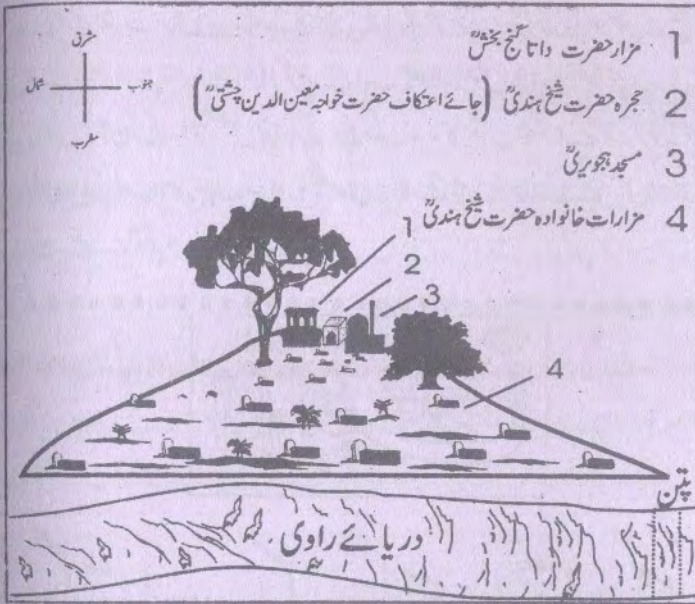 مشرق
شمال
جنوب
مغرب
1 مزار حضرت داتا گنج بخشؒ
2 حجرہ حضرت شیخ ہندیؒ (جائے اعتکاف حضرت خواجہ معین الدین چشتیؒ)
3 مسجد ہجویریؒ
4 مزارات خانوادہ حضرت شیخ ہندیؒ
1
2
3
4
پتن
دریائے راوی